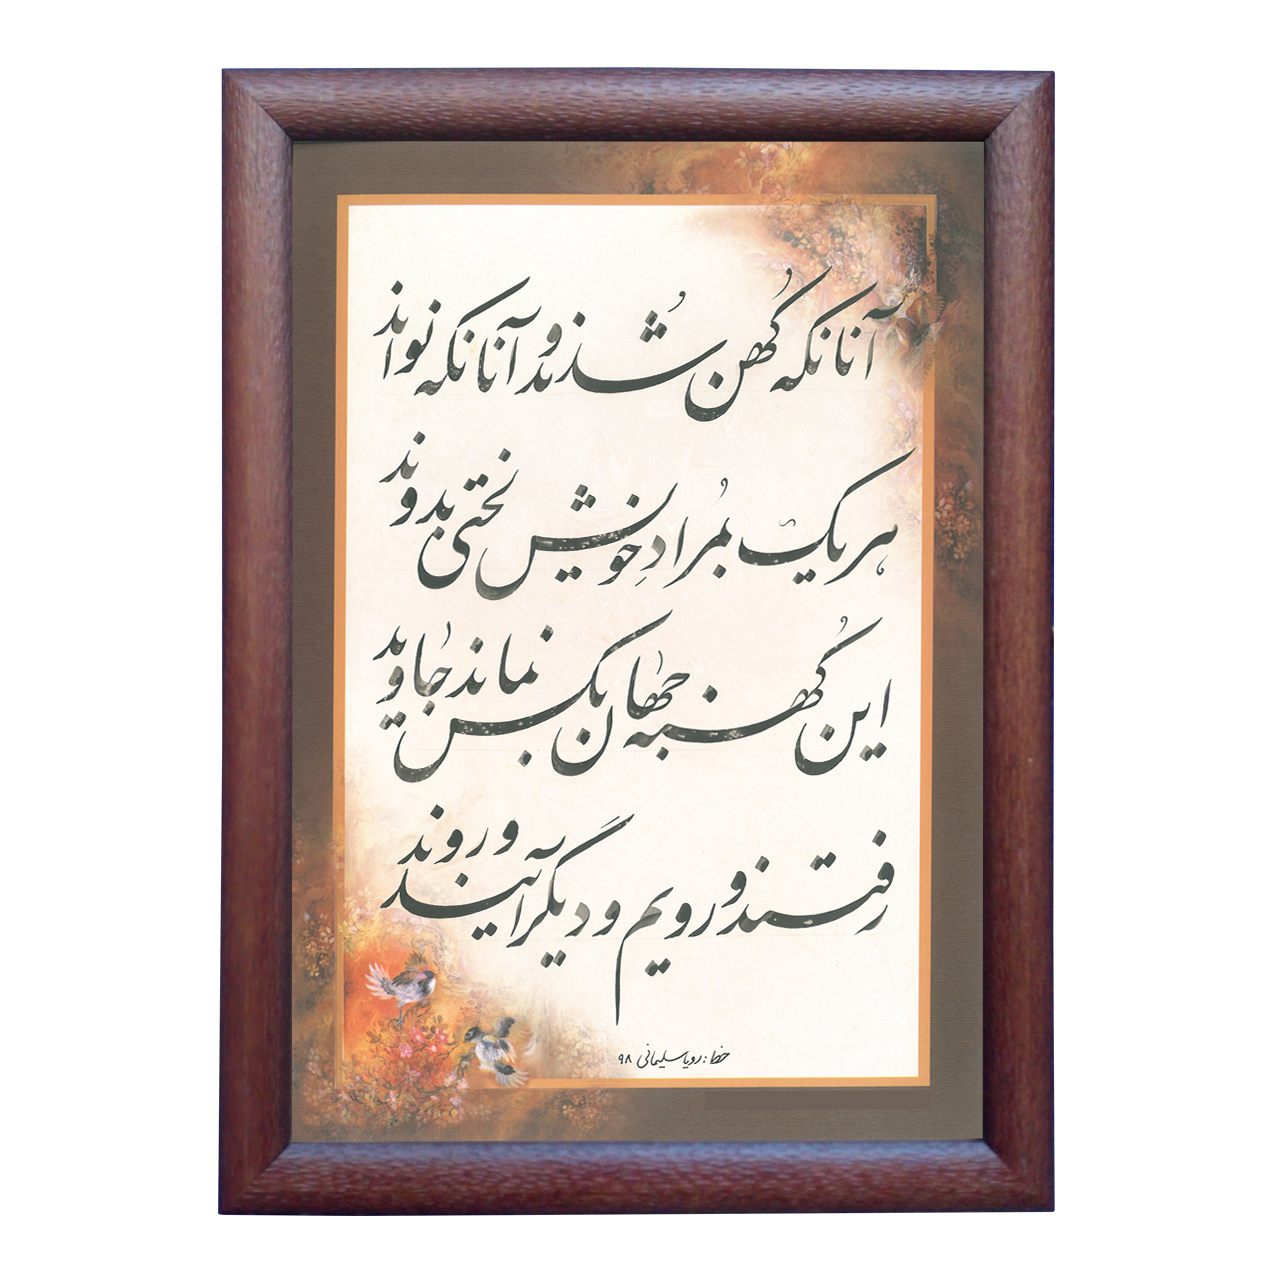 آنانکه کُهن شُدند و آنانکه نواند
هر یک بمُرادِ خویش لختی بدوند
این کُهنه جهان بکس نماند جاوید
رفتند و رویم و دیگر آیند و روند
خط: رویا سلیمانی ۹۸